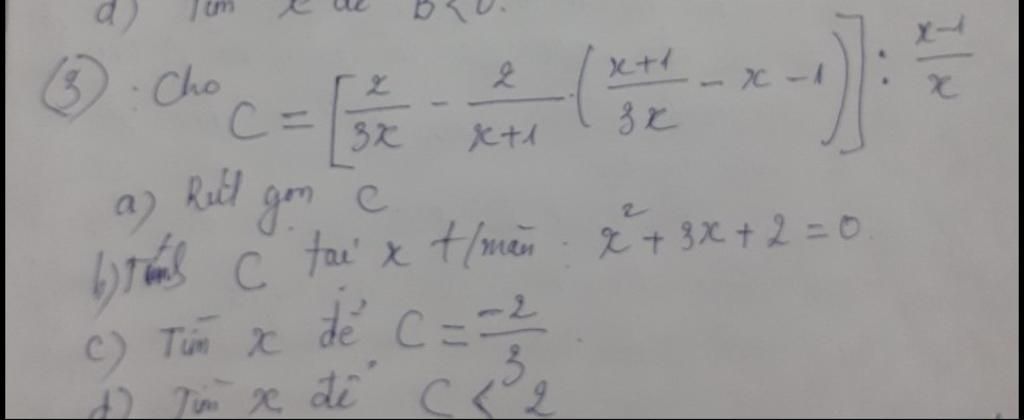 d) Tìm x để B < 0.
③ : Cho C = [ 2/3x - 2/x+1 . ( x+1/3x - x - 1 ) ] : x-1/x
a) Rút gọn C
b) Tính C tại x t/mãn : x² + 3x + 2 = 0.
c) Tìm x để C = -2/3 .
d) Tìm x để C < 2